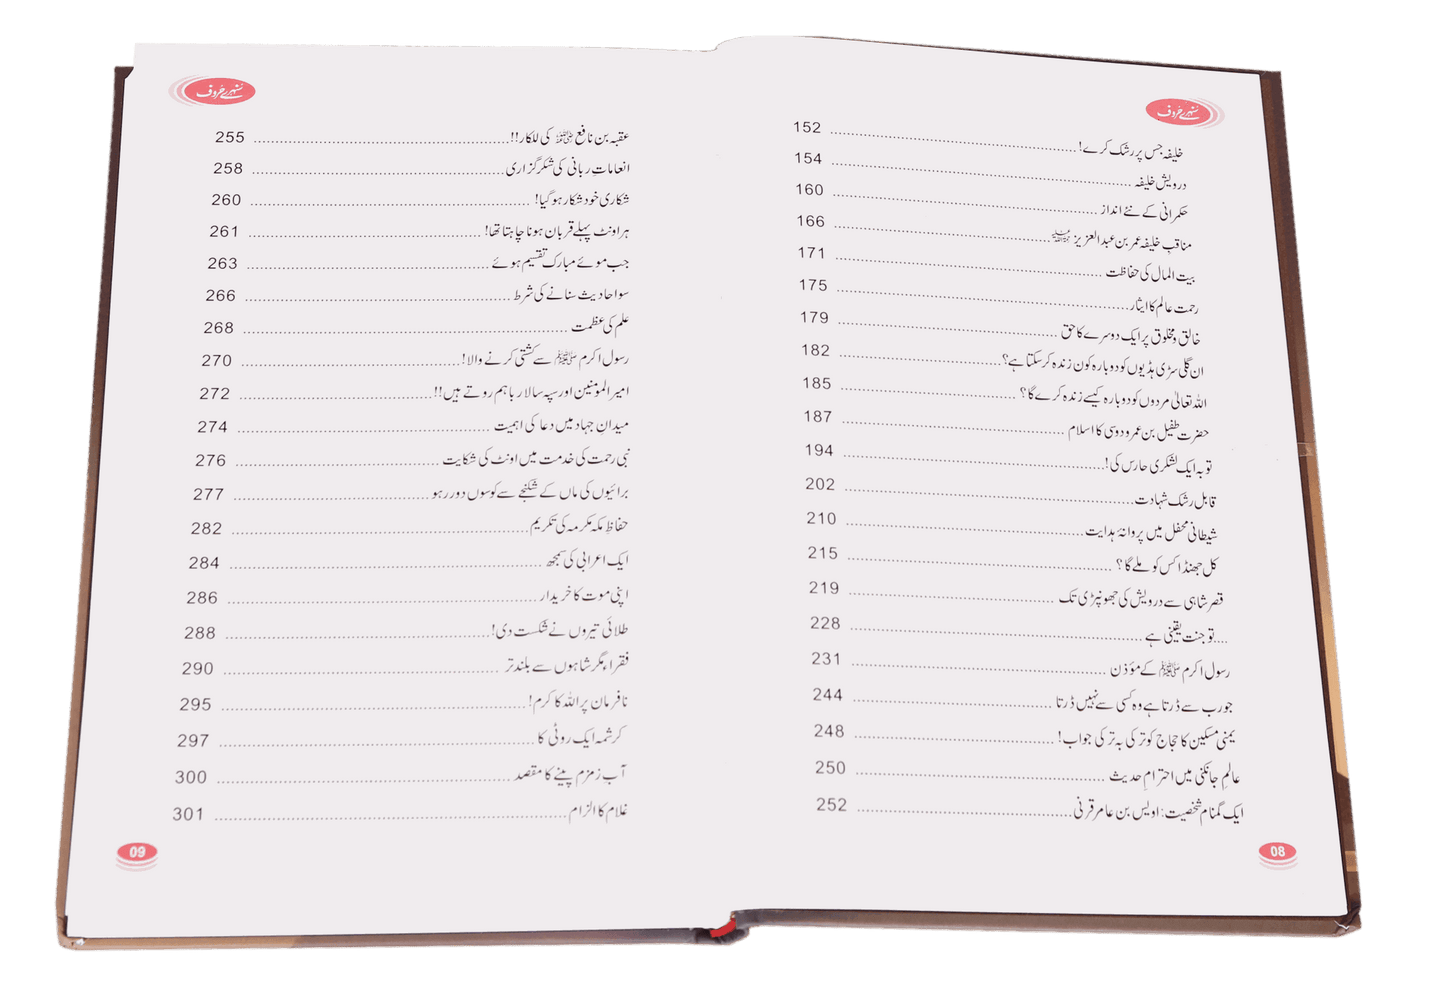 سنہرے حروف
خلیفہ جس پر رشک کرے! 152
درویش خلیفہ 154
حکمرانی کے نئے انداز 160
مناقبِ خلیفہ عمر بن عبدالعزیز 166
بیت المال کی حفاظت 171
رحمت عالم کا ایثار 175
خالق و مخلوق پر ایک دوسرے کا حق 179
ان گلی سڑی ہڈیوں کو دوبارہ کون زندہ کرسکتا ہے؟ 182
اللہ تعالیٰ مردوں کو دوبارہ کیسے زندہ کرے گا؟ 185
حضرت طفیل بن عمرو دوسی کا اسلام 187
توبہ ایک لشکری حارس کی! 194
قابل رشک شہادت 202
شیطانی محفل میں پروانۂ ہدایت 210
کل جھنڈا کس کو ملے گا؟ 215
قصر شاہی سے درویش کی جھونپڑی تک 219
....تو جنت یقینی ہے 228
رسول اکرم ﷺ کے مؤذن 231
جو رب سے ڈرتا ہے وہ کسی سے نہیں ڈرتا 244
یمنی مسکین کا حجاج کو ترکی بہ ترکی جواب! 248
عالمِ جانکنی میں احترامِ حدیث 250
ایک گمنام شخصیت: اویس بن عامر قرنی 252
08
سنہرے حروف
عقبہ بن نافع کی للکار!! 255
انعاماتِ ربانی کی شکرگزاری 258
شکاری خود شکار ہوگیا! 260
ہر اونٹ پہلے قربان ہونا چاہتا تھا! 261
جب موئے مبارک تقسیم ہوئے 263
سو احادیث سنانے کی شرط 266
علم کی عظمت 268
رسول اکرم ﷺ سے کشتی کرنے والا! 270
امیر المؤمنین اور سپہ سالار باہم روتے ہیں!! 272
میدانِ جہاد میں دعا کی اہمیت 274
نبی رحمت کی خدمت میں اونٹ کی شکایت 276
برائیوں کی ماں کے شکنجے سے کوسوں دور رہو 277
حفاظِ مکہ مکرمہ کی تکریم 282
ایک اعرابی کی سمجھ 284
اپنی موت کا خریدار 286
طلائی تیروں نے شکست دی! 288
فقراء مگر شاہوں سے بلند تر 290
نافرمان پر اللہ کا کرم! 295
کرشمہ ایک روٹی کا 297
آب زمزم پینے کا مقصد 300
غلام کا الزام 301
09